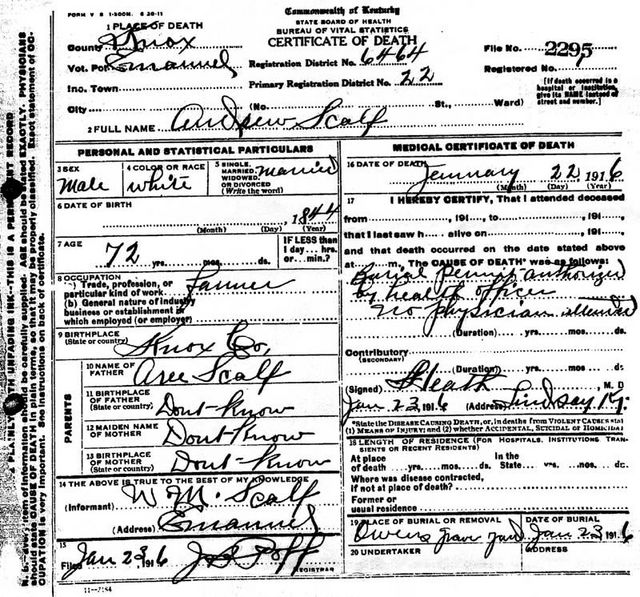 FORM V S 1-200M. 6 20-11
Commonwealth of Kentucky
STATE BOARD OF HEALTH
BUREAU OF VITAL STATISTICS
CERTIFICATE OF DEATH
1 PLACE OF DEATH
County Knox
Vot. Pct. Emanuel
Inc. Town
City
Registration District No. 6464
Primary Registration District No. 22
File No. 2295
Registered No.
[If death occurred in a
hospital or institution,
give its NAME instead of
street and number.]
(No. St., Ward)
2 FULL NAME Andrew Scalf
PERSONAL AND STATISTICAL PARTICULARS
3 SEX
Male
4 COLOR OR RACE
White
5 SINGLE,
MARRIED,
WIDOWED,
OR DIVORCED
(Write the word)
Married
6 DATE OF BIRTH
1844
(Month) (Day) (Year)
7 AGE
72 yrs. mos. ds.
IF LESS than
1 day, hrs.
or min.?
8 OCCUPATION
(a) Trade, profession, or
particular kind of work Farmer
(b) General nature of industry
business or establishment in
which employed (or employer)
9 BIRTHPLACE
(State or country) Knox Co,
PARENTS
10 NAME OF
FATHER Scalf
11 BIRTHPLACE
OF FATHER
(State or country) Dont Know
12 MAIDEN NAME
OF MOTHER Dont Know
13 BIRTHPLACE
OF MOTHER
(State or country) Dont Know
14 THE ABOVE IS TRUE TO THE BEST OF MY KNOWLEDGE
(Informant) W. M. Scalf
(Address) Emanuel
15
Filed Jan 23 1916
REGISTRAR
11-7184
MEDICAL CERTIFICATE OF DEATH
16 DATE OF DEATH
January 22 1916
(Month) (Day) (Year)
17 I HEREBY CERTIFY, That I attended deceased
from , 191 , to , 191 ,
that I last saw h alive on , 191 ,
and that death occurred on the date stated above
at m, The CAUSE OF DEATH* was as follows:
Burial Permit authorized
by health officer
no physician attended
(Duration) yrs. mos. ds.
Contributory
(SECONDARY)
(Duration) yrs. mos. ds.
(Signed) Heath, M. D
Jan 23 1916 (Address) Lindsay Ky.
*State the DISEASE CAUSING DEATH, or, in deaths from VIOLENT CAUSES state
(1) MEANS OF INJURY; and (2) whether ACCIDENTAL, SUICIDAL OR HOMICIDAL
18 LENGTH OF RESIDENCE (FOR HOSPITALS, INSTITUTIONS, TRAN-
SIENTS OR RECENT RESIDENTS)
At place
of death yrs. mos. ds.
In the
State yrs. mos. ds.
Where was disease contracted,
if not at place of death?
Former or
usual residence
19 PLACE OF BURIAL OR REMOVAL
Owens grave yard
DATE OF BURIAL
Jan 23 1916
20 UNDERTAKER
ADDRESS
PLAINLY WITH UNFADING INK--THIS IS A PERMANENT RECORD
N. B.--Every item of information should be carefully supplied. AGE should be stated EXACTLY. PHYSICIANS
should state CAUSE OF DEATH in plain terms, so that it may be properly classified. Exact statement of OC-
CUPATION is very important. See instructions on back of certificate.